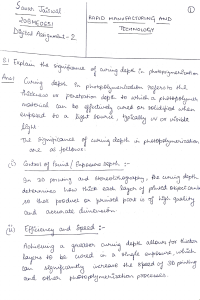 Saran Jaiswal
Digital Assignment - 2
RAPID MANUFACTURING AND
TECHNOLOGY
①
Q1 Explain the significance of curing depth in photopolymerization
Ans) Curing depth in photopolymerization refers to the
thickness or penetration depth to which a photopolymer
material can be effectively cured or solidified when
exposed to a light source, typically UV or visible
light.
The significance of curing depth in photopolymerization
are as follows:
(i) Control of Print / Exposure Depth :-
In 3D printing and stereolithography, the curing depth
determines how thick each layer of printed object can be
so that product or printed part is of high quality
and accurate dimension.
(ii) Efficiency and Speed :-
Achieving a greater curing depth allows for thicker
layers to be cured in a single exposure, which
can significantly increase the speed of 3D printing
and other photopolymerization processes.